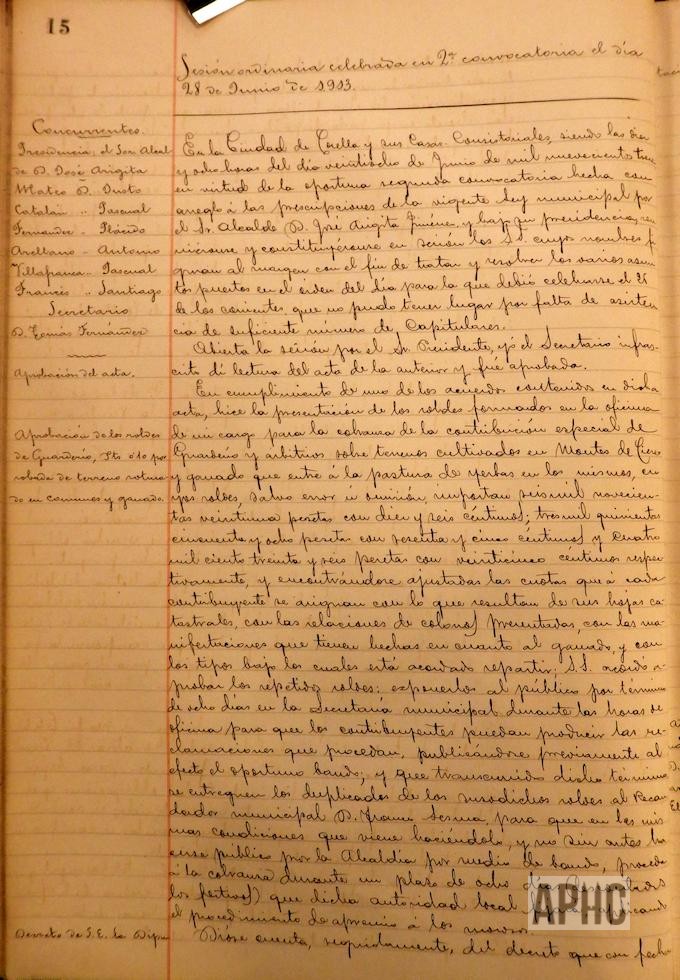 15
Sesión ordinaria celebrada en 2ª convocatoria el día
28 de Junio de 1913.
Concurrentes.
Presidencia; el Sor. Alcal
de D. José Arigita
Mateo D. Justo
Catalán " Pascual
Fernández " Plácido
Arellano " Antonio
Villafranca " Pascual
Francés " Santiago
Secretario
D. Tomás Fernández
Aprobación del acta.
Aprobación de los roldes
de Guarderío, Pts 0'10 por
robada de terreno rotura-
do en comunes y ganado.
Decreto de S.E. la Dipu
En la Ciudad de Corella y sus Casas Consistoriales, siendo las diez
y ocho horas del día veintiocho de Junio de mil novecientos trece
en virtud de la oportuna segunda convocatoria hecha con
arreglo á las prescripciones de la vigente ley municipal por
el Sr. Alcalde D. José Arigita Jiménez y bajo su presidencia, reu
niéronse y constituyéronse en sesión los S.S. cuyos nombres fi
guran al margen con el fin de tratar y resolver los varios asun
tos puestos en el orden del día para la que debió celebrarse el 25
de los corrientes, que no pudo tener lugar por falta de asisten
cia de suficiente número de Capitulares.
Abierta la sesión por el Sr. Presidente, yo el Secretario infras-
crito dí lectura del acta de la anterior y fué aprobada.
En cumplimiento de uno de los acuerdos contenidos en dicha
acta, hice la presentación de los roldes formados en la oficina
de mi cargo para la cobranza de la contribución especial de
Guarderío y arbitrios sobre terrenos cultivados en Montes de Cierzo
y ganado que entre á la pastura de yerbas en los mismos, cu
yos roldes, salvo error ú omisión, importan seis mil novecien-
tas veintiuna pesetas con diez y seis céntimos; tres mil quinientas
cincuenta y ocho pesetas con sesenta y cinco céntimos y cuatro
mil ciento treinta y seis pesetas con veinticinco céntimos respec
tivamente, y encontrándose ajustadas las cuotas que á cada
contribuyente se asignan con lo que resultan de sus hojas ca
tastrales, con las relaciones de colonos presentadas, con las ma
nifestaciones que tienen hechas en cuanto al ganado, y con
los tipos bajo los cuales está acordado repartir; S.S. acordó a-
probar los repetidos roldes; exponerlos al público por término
de ocho días en la Secretaría municipal durante las horas de
oficina para que los contribuyentes puedan producir las re-
clamaciones que procedan, publicándose previamente al
efecto el oportuno bando; y que transcurrido dicho término
se entreguen los duplicados de los susodichos roldes al Recau
dador municipal D. Sesma, para que en las mis
mas condiciones que viene haciéndolo, y no sin antes ha
cerse público por la Alcaldía por medio de bando, proceda
á la cobranza durante un plazo de ocho días
los festivos) que dicha autoridad local
el procedimiento de apremio á los morosos.
Dióse cuenta, seguidamente, del decreto que con fecha
APHC